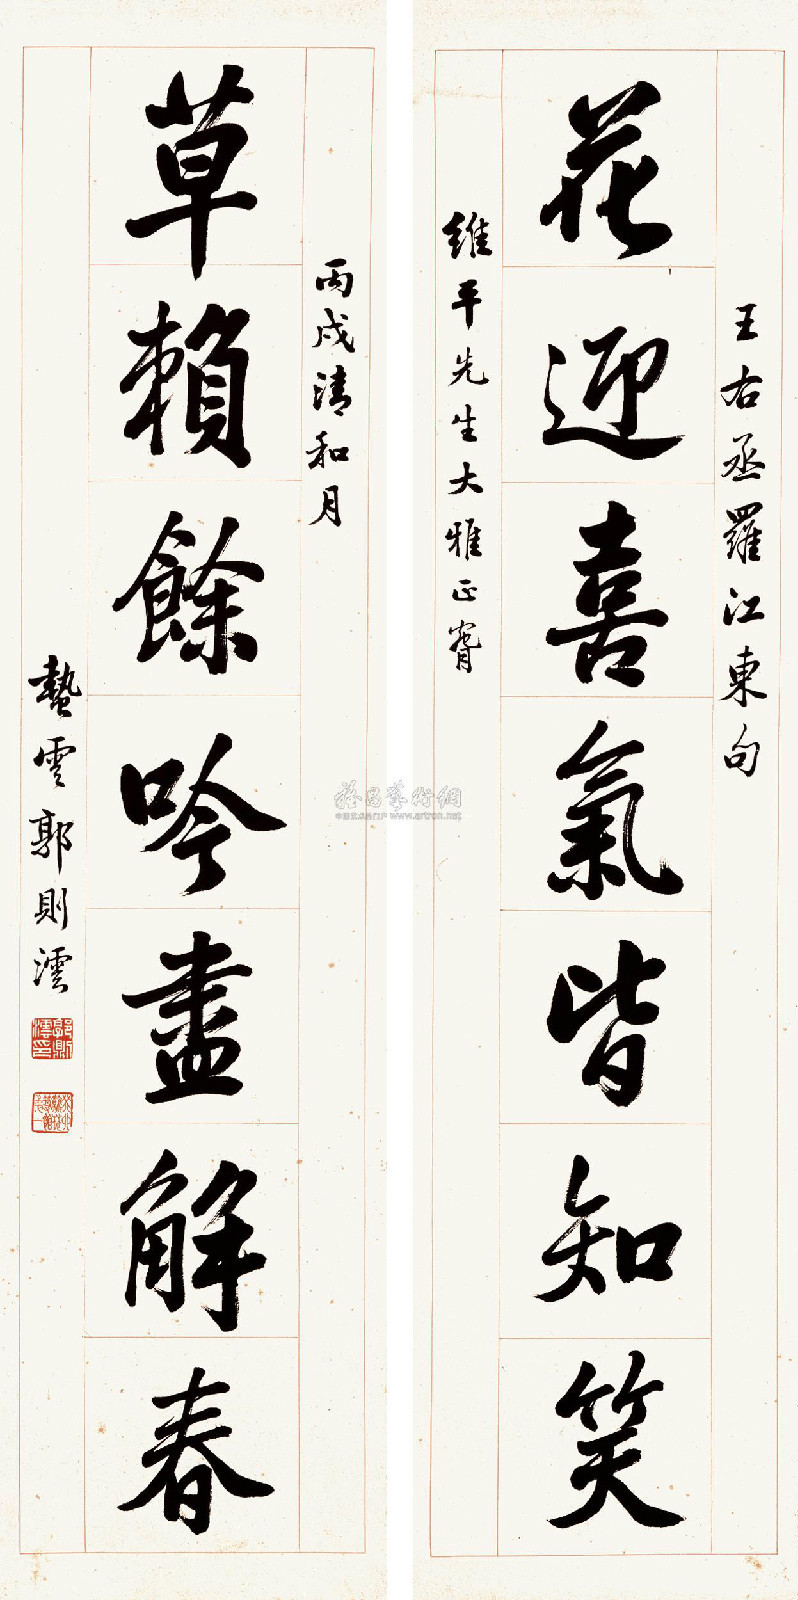 花迎喜氣皆知笑
王右丞羅江東句
維平先生大雅正腕
草賴餘吟盡解春
丙戌清和月
蟄雲郭則澐
郭則澐印